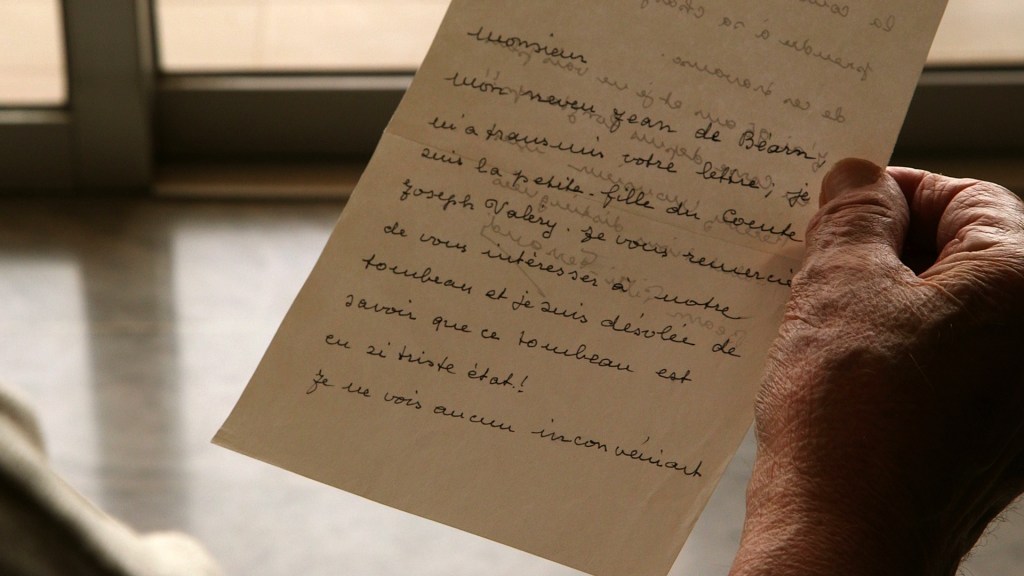 Monsieur
Mon neveu Jean de Béarn
m'a transmis votre lettre, je
suis la petite-fille du Comte
Joseph Valery. Je vous remercie
de vous intéresser à notre
tombeau et je suis désolée de
savoir que ce tombeau est
en si triste état!
Je ne vois aucun inconvéniant